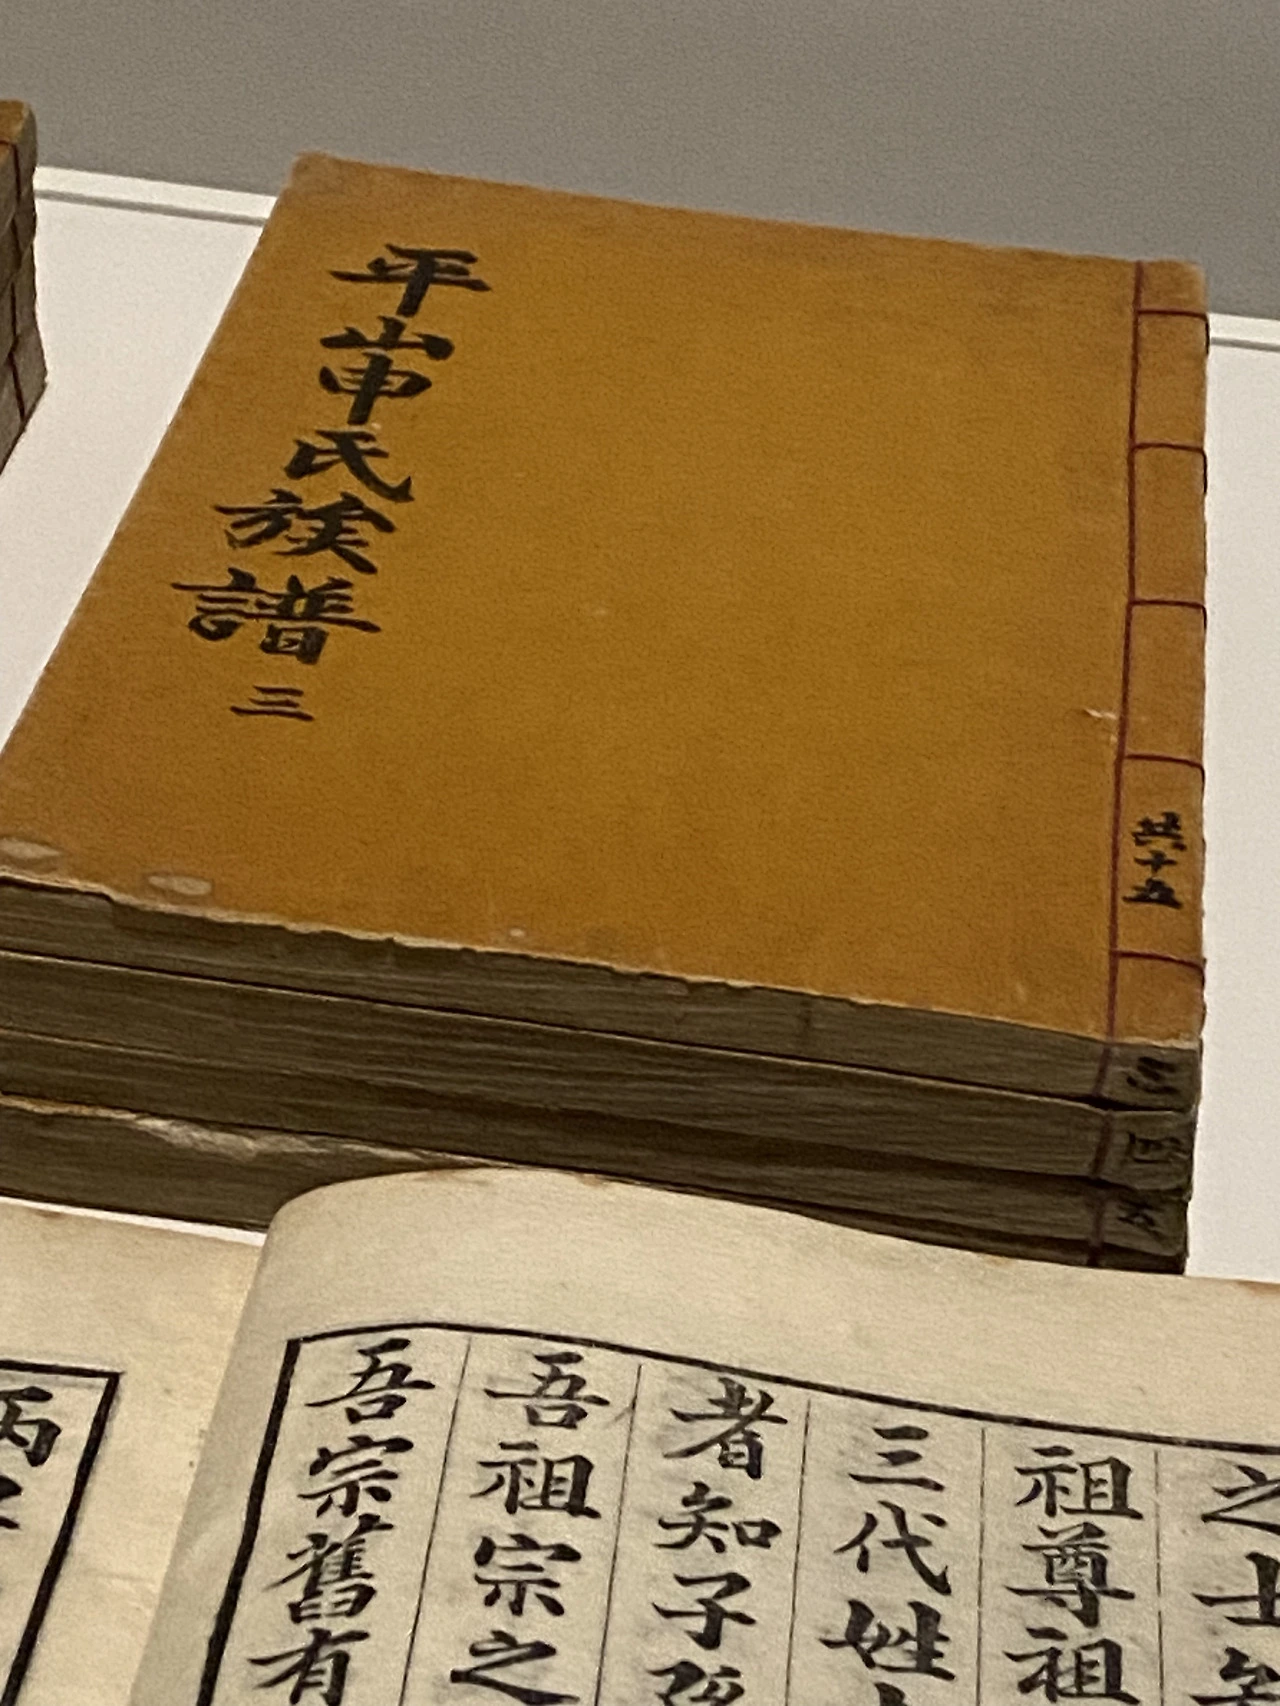 平山申氏族譜 三
共十五
三
四
五
之士
祖尊祖
三代姓
者知子孫
吾祖宗之
吾宗舊有
丙